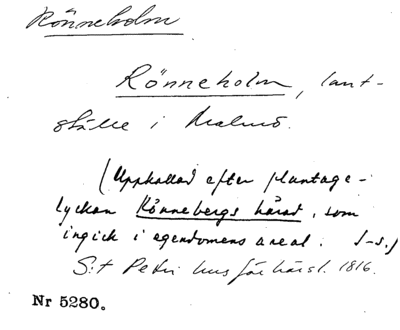 Rönneholm
Rönneholm, lant-
ställe i Malmö.
(Uppkallad efter plantage-
lyckan Rönnebergs härad, som
ingick i egendomens areal. J-s.)
S:t Petri husförhörsl. 1816.
Nr 5280.